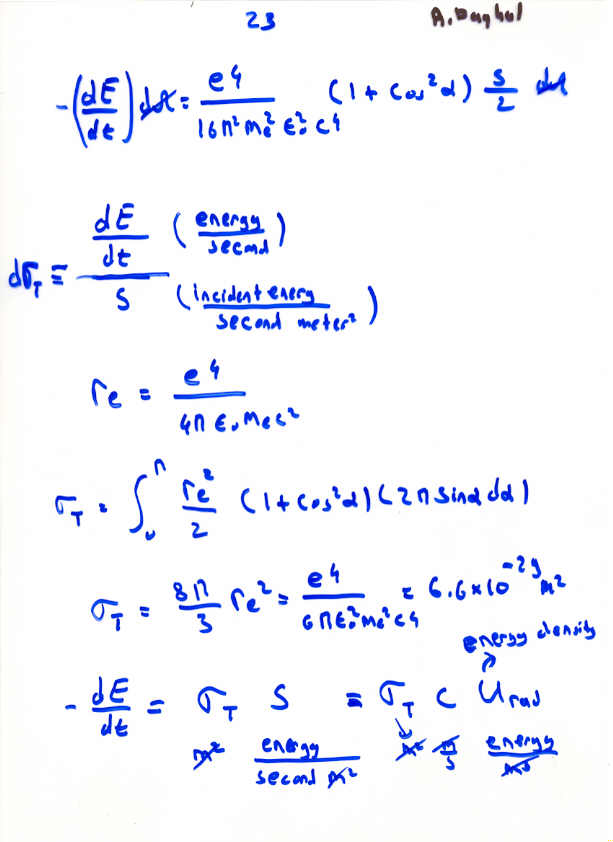 23
A. Daghal
-(dE/dt) dΩ = e4/16π²me²ε₀²c4 (1 + cos²α) S/2 dΩ
dσT ≡ dE/dt (energy/second) / S (incident energy/second meter²)
re = e4/4πε₀mec²
σT = ∫₀^π re²/2 (1 + cos²α) (2π sinα dα)
σT = 8π/3 re² = e4/6πε₀²me²c4 = 6.6×10⁻²⁹ m²
energy density
- dE/dt = σT S = σT c Urad
m² energy/second m² m² m/s energy/m³